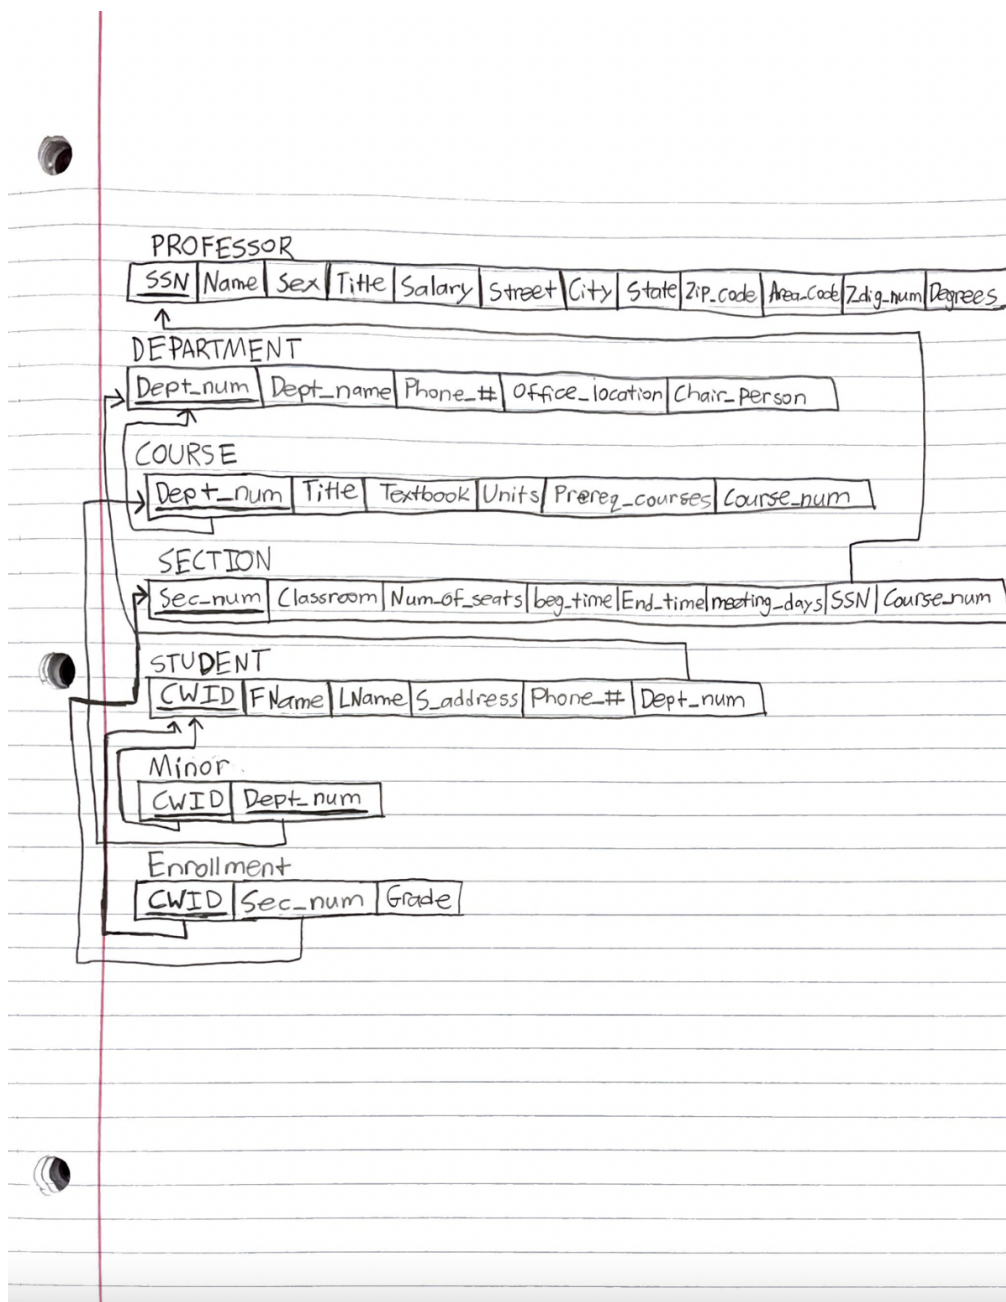 PROFESSOR
SSN Name Sex Title Salary Street City State Zip_code Area_Code 7dig_num Degrees
DEPARTMENT
Dept_num Dept_name Phone_# Office_location Chair_Person
COURSE
Dept_num Title Textbook Units Prereq_courses Course_num
SECTION
Sec_num Classroom Num_of_seats beg_time End_time meeting_days SSN Course_num
STUDENT
CWID FName LName S_address Phone_# Dept_num
Minor
CWID Dept_num
Enrollment
CWID Sec_num Grade